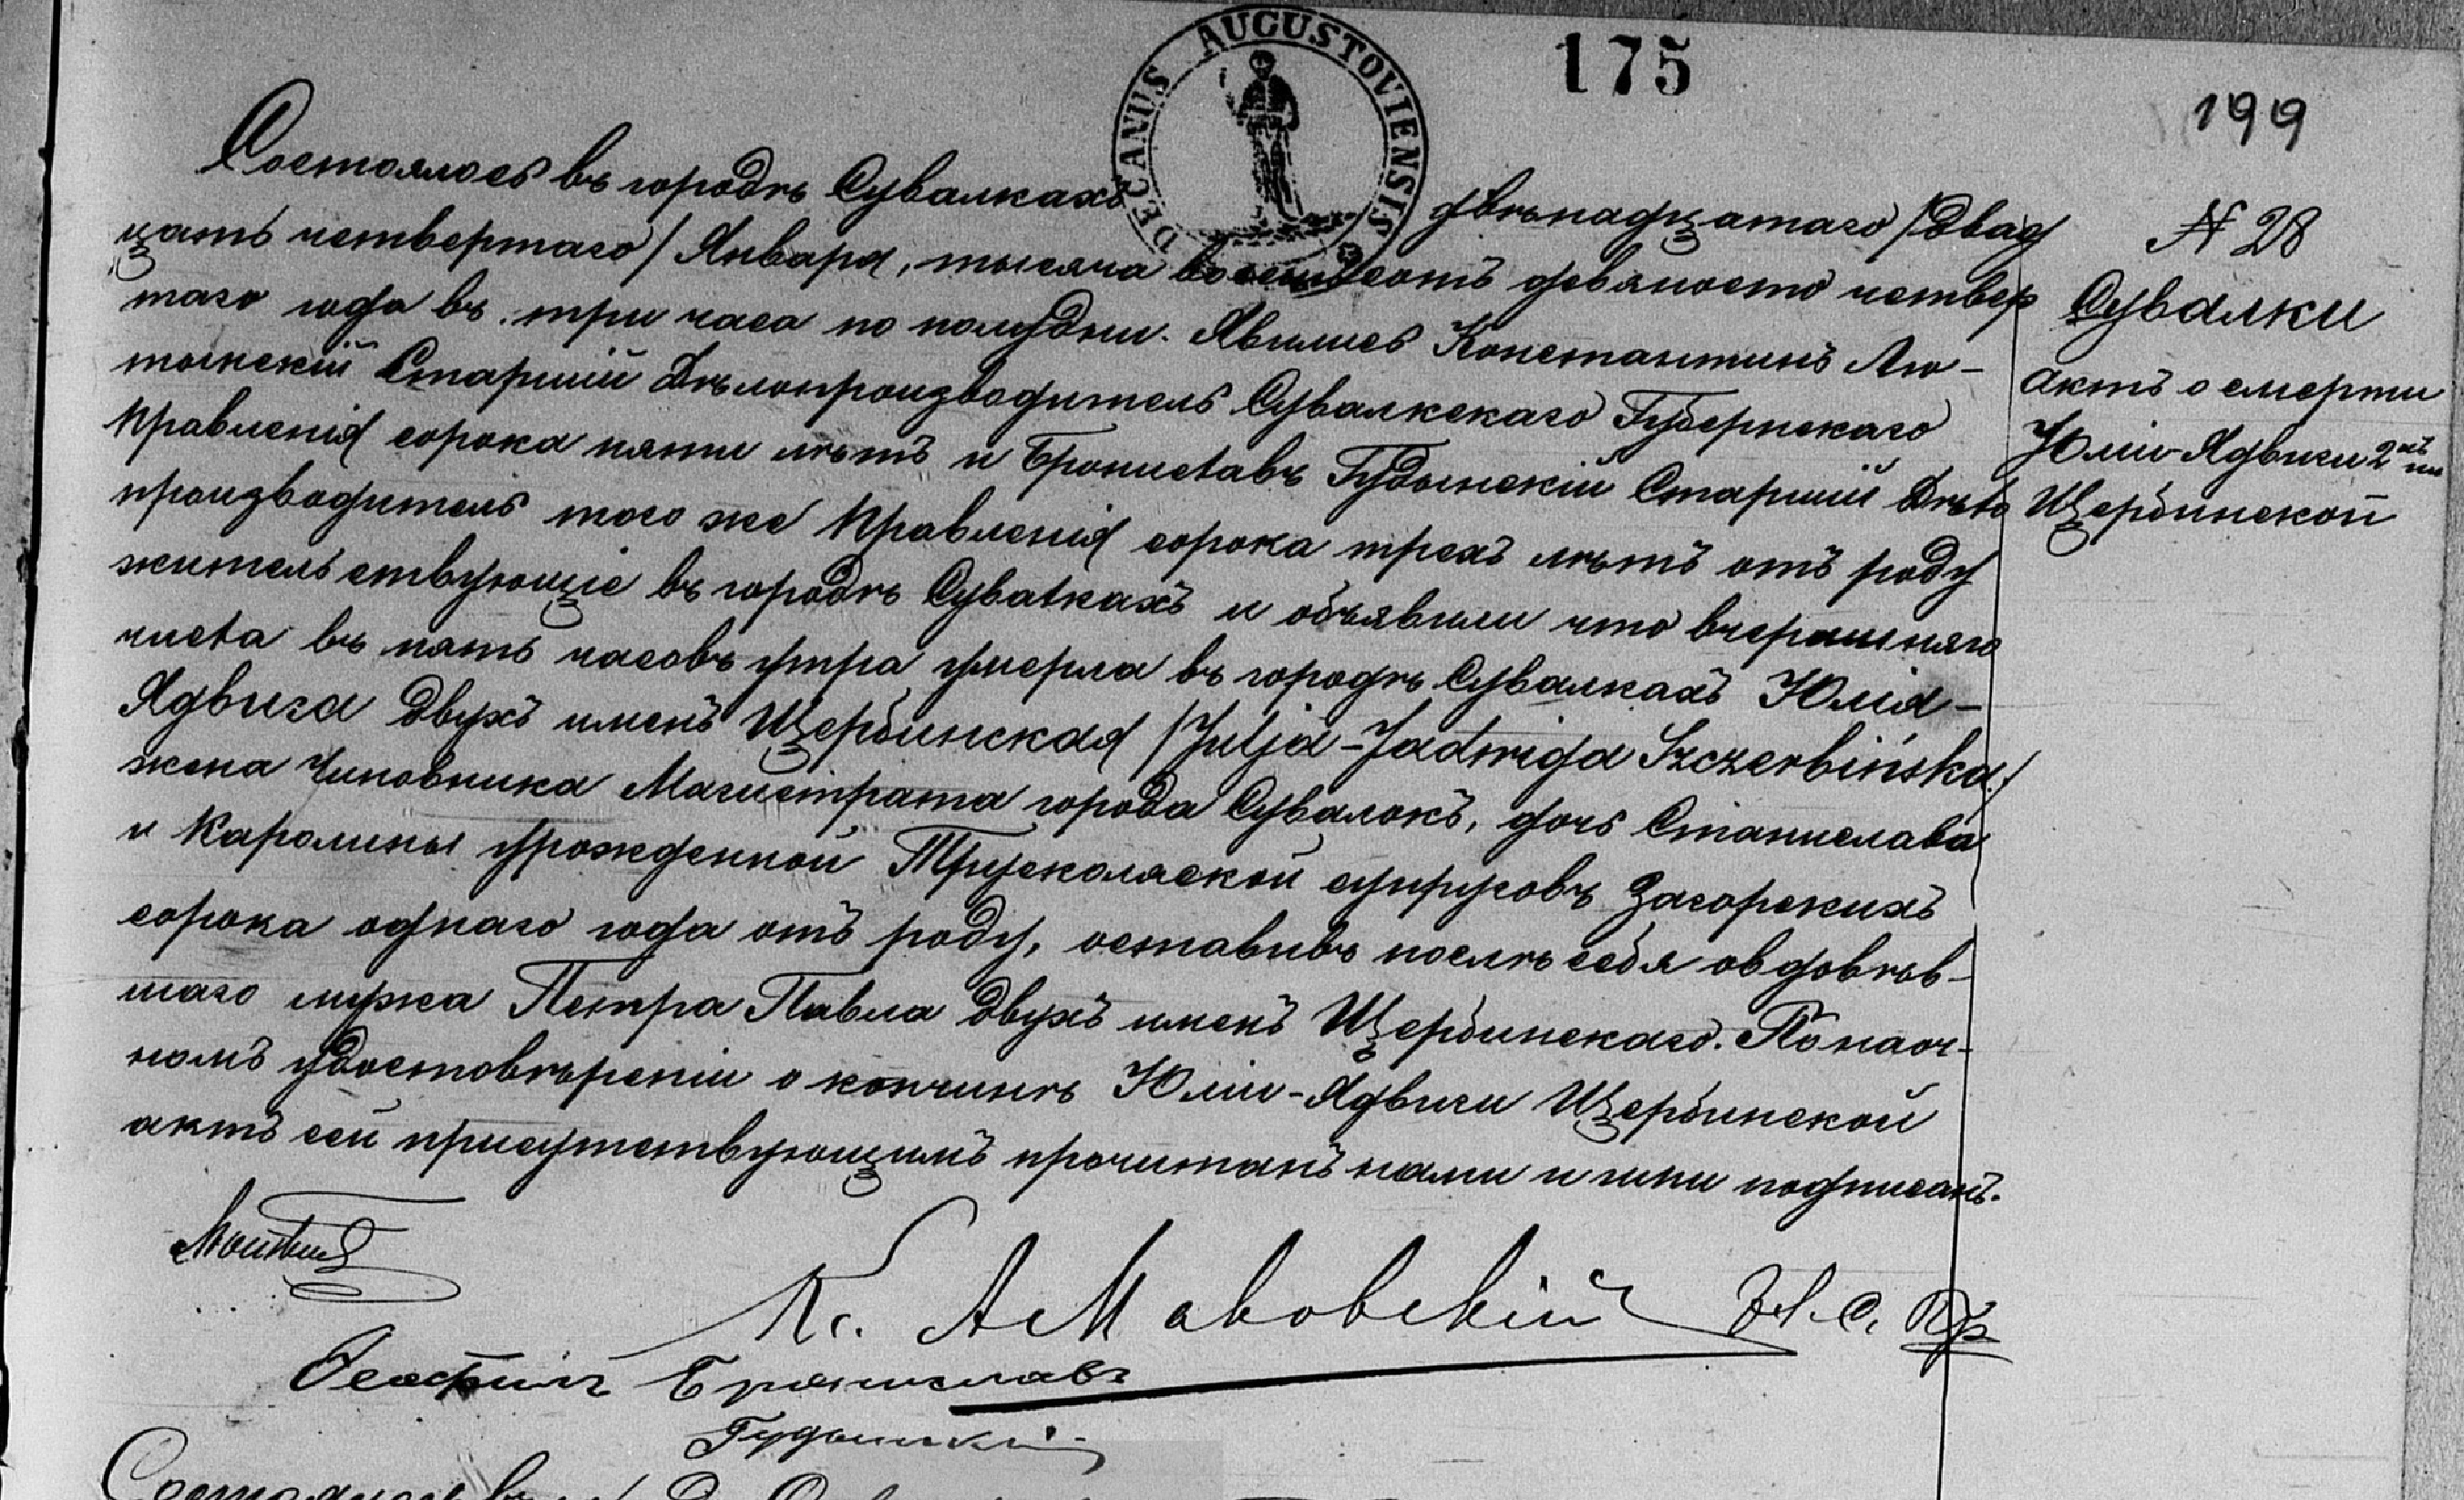 DECANUS AUGUSTOVIENSIS
175
199
Состоялось въ городѣ Сувалкахъ двѣнадцатаго /двад
цать четвертаго/ Января, тысяча восемьсотъ девяносто четвер
таго года въ три часа по полудни. Явились Константинъ Лю-
тынскій Старшій Дѣлопроизводитель Сувалкскаго Губернскаго
Правленія сорока пяти лѣтъ и Брониславъ Гудынскій Старшій Дѣло
производитель того же Правленія сорока трехъ лѣтъ отъ роду
жительствующіе въ городѣ Сувалкахъ и объявили что вчерашняго
числа въ пять часовъ утра умерла въ городѣ Сувалкахъ Юлія-
Ядвига двухъ именъ Щербинская /Julja-Jadwiga Szczerbińska/
жена Чиновника Магистрата города Сувалокъ, дочь Станислава
и Каролины урожденной Трусколяской супруговъ Загорскихъ
сорока однаго года отъ роду, оставивъ послѣ себя овдовѣв-
шаго мужа Петра Павла двухъ именъ Щербинскаго. По наоч-
номъ удостовѣреніи о кончинѣ Юліи-Ядвиги Щербинской
актъ сей присутствующимъ прочитанъ нами и ими подписанъ.
N 28
Сувалки
актъ о смерти
Юліи-Ядвиги 2хъ им
Щербинской
Кс. А Маковскій Н. С. Пр
Брониславъ
Гудынскій
Состоялось въ